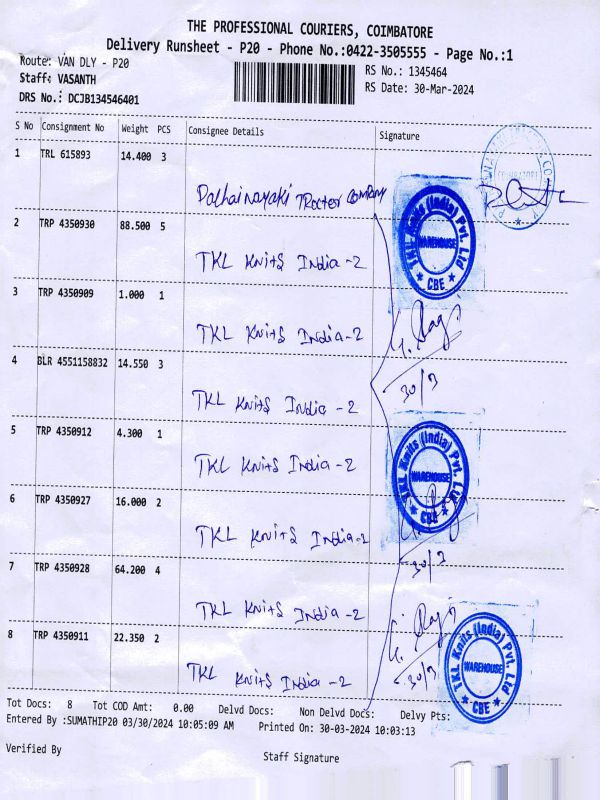 THE PROFESSIONAL COURIERS, COIMBATORE
Delivery Runsheet - P20 - Phone No.:0422-3505555 - Page No.:1
Route: VAN DLY - P20
RS No.: 1345464
Staff: VASANTH
RS Date: 30-Mar-2024
DRS No.: DCJB134546401
S No Consignment No Weight PCS Consignee Details Signature
1 TRL 615893 14.400 3
TRacter COMPANY
2 TRP 4350930 88.500 5
TKL Knits India -2
3 TRP 4350909 1.000 1
TKL Knits India -2
4 BLR 4551158832 14.550 3
30/3
TKL Knits India -2
5 TRP 4350912 4.300 1
TKL Knits India -2
6 TRP 4350927 16.000 2
TKL Knits India -2
30/3
7 TRP 4350928 64.200 4
TKL Knits India -2
8 TRP 4350911 22.350 2
TKL Knits India -2
30/3
TKL Knits (India) Pvt. Ltd
WAREHOUSE
★ CBE ★
TKL Knits (India) Pvt. Ltd
WAREHOUSE
★ CBE ★
TKL Knits (India) Pvt. Ltd
WAREHOUSE
★ CBE ★
Tot Docs: 8 Tot COD Amt: 0.00 Delvd Docs: Non Delvd Docs: Delvy Pts:
Entered By :SUMATHIP20 03/30/2024 10:05:09 AM Printed On: 30-03-2024 10:03:13
Verified By
Staff Signature